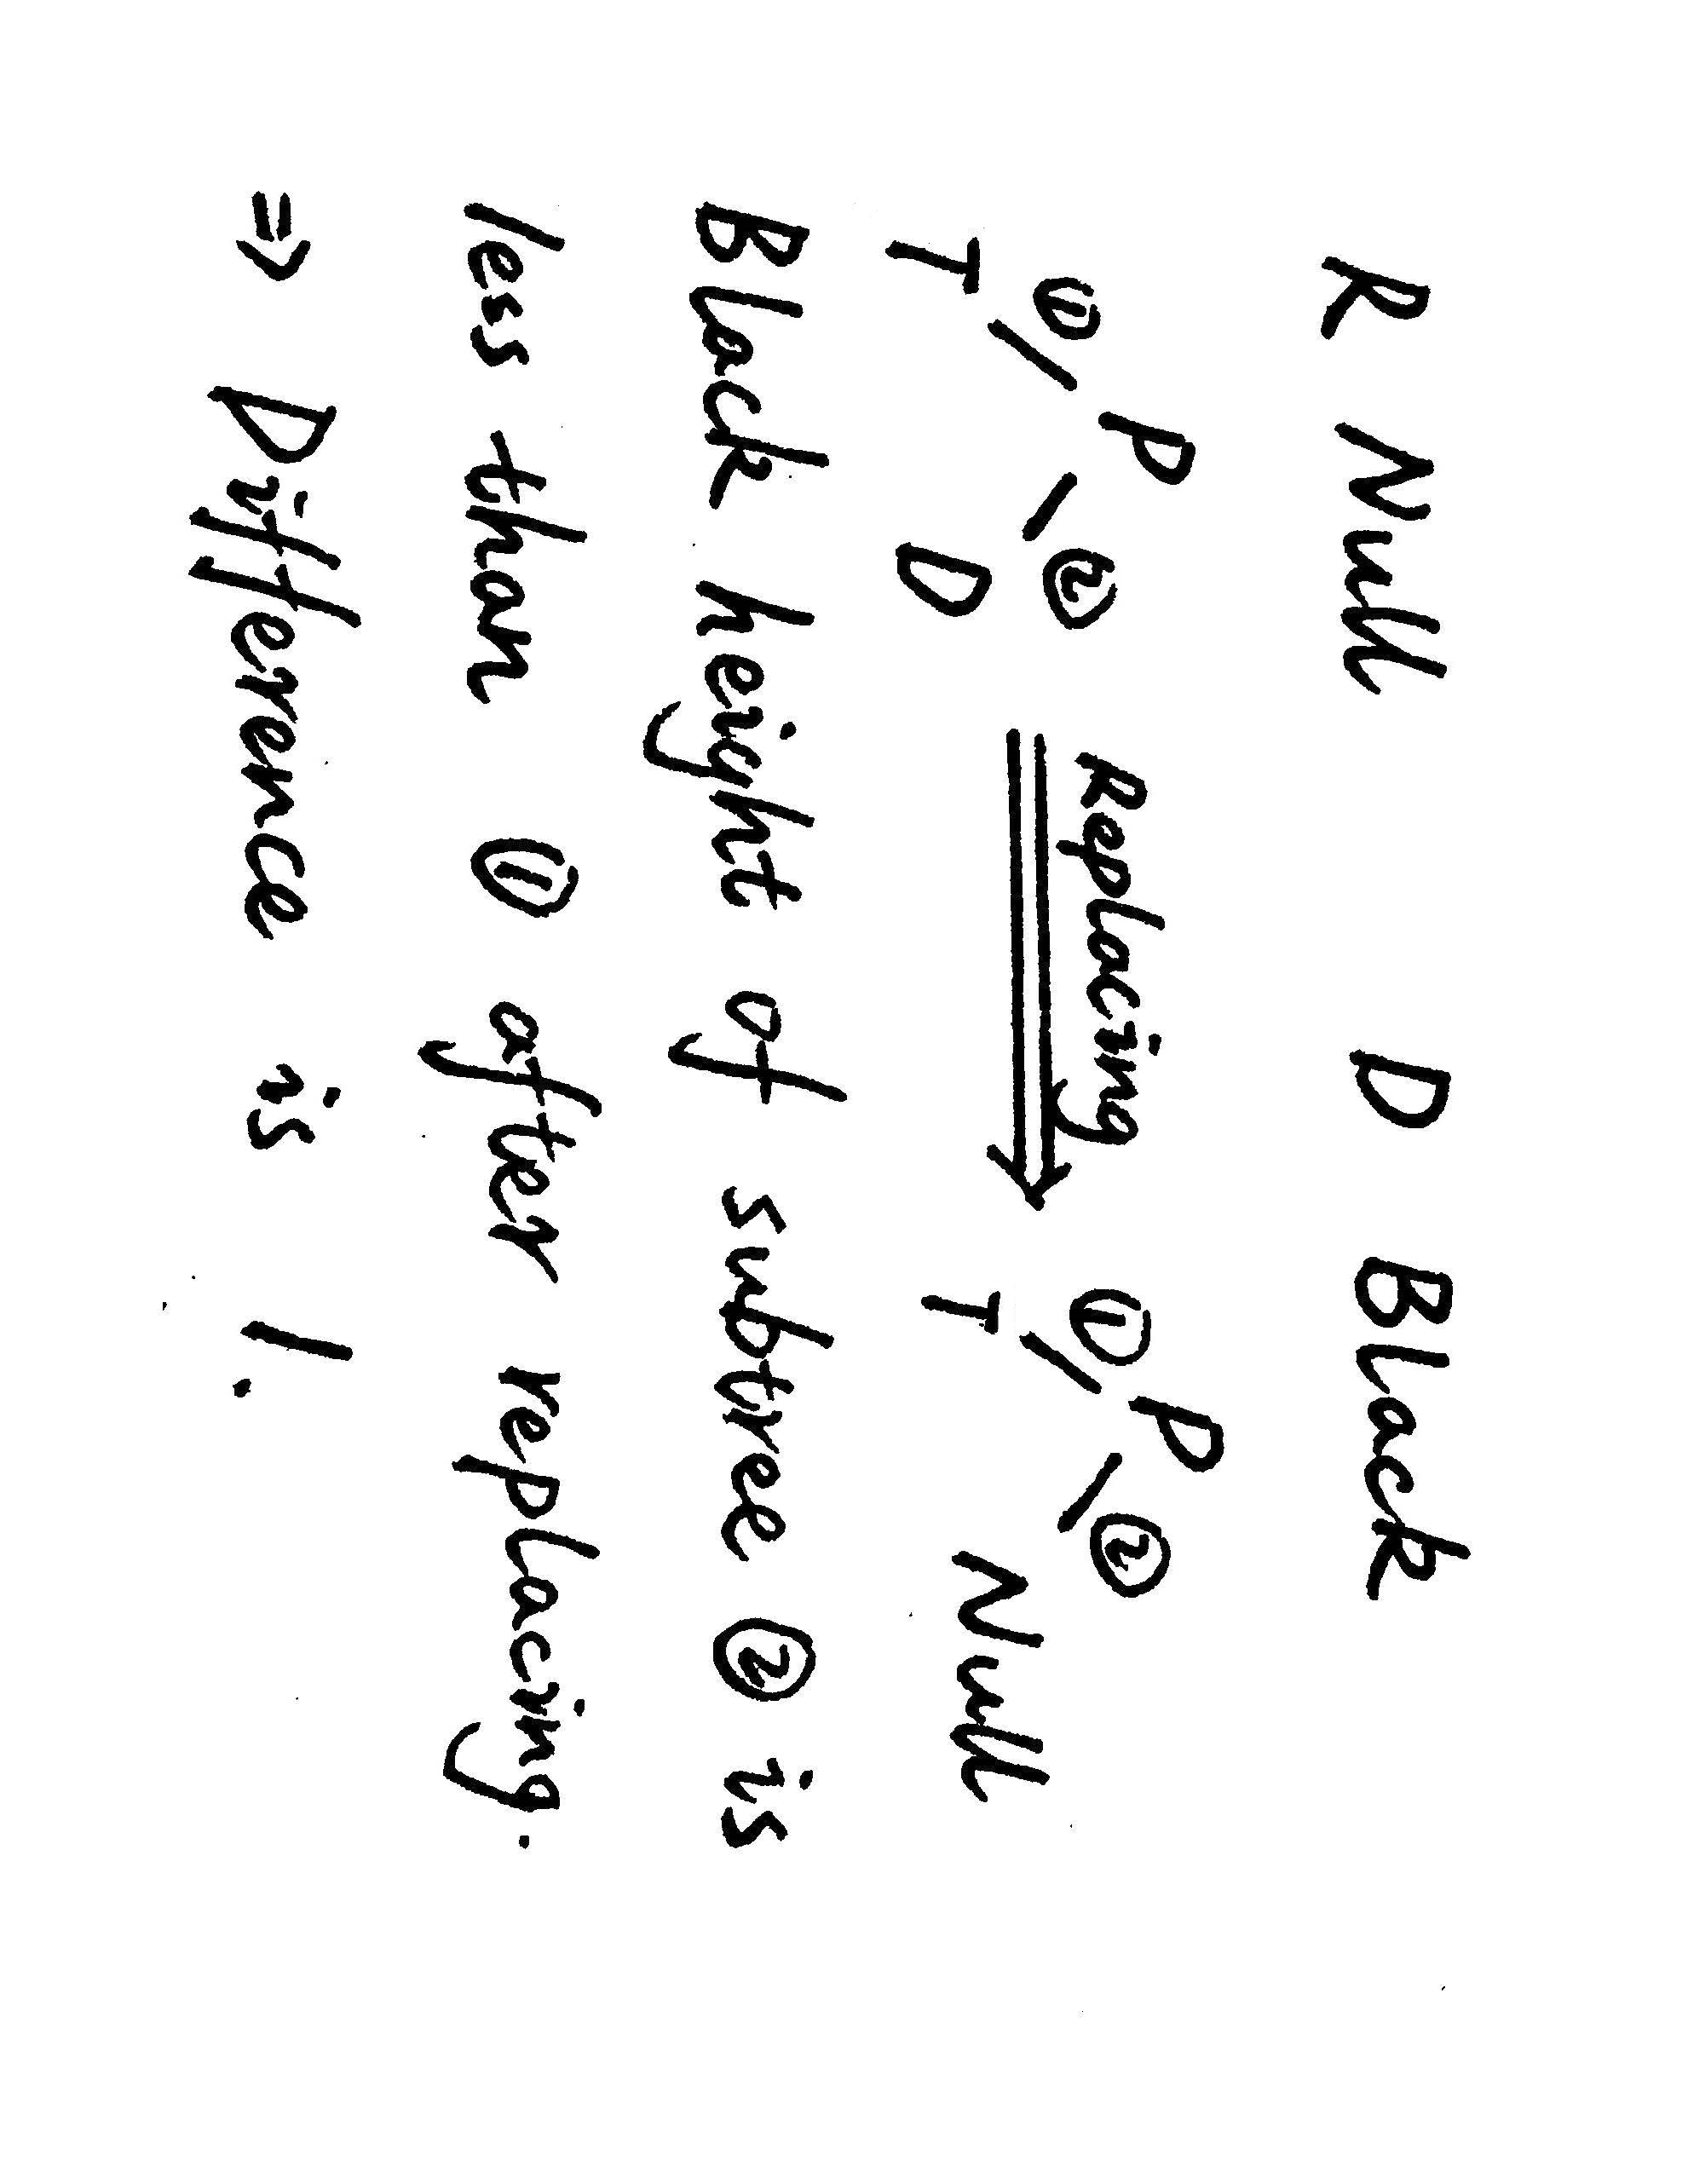 R Null D Black
P Replacing P
① ② ① ②
T D T Null
Black height of subtree ② is
less than ① after replacing.
⇒ Difference is 1.